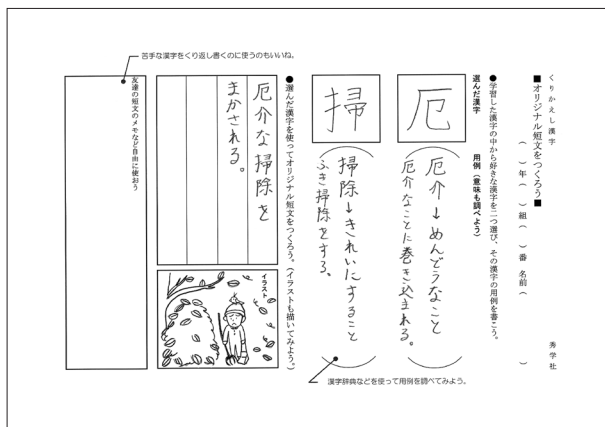 くりかえし漢字
■オリジナル短文をつくろう■
(　)年(　)組(　)番 名前(　)
秀学社
●学習した漢字の中から好きな漢字を二つ選び、その漢字の用例を書こう。
選んだ漢字
用例(意味も調べよう)
厄
厄介→めんどうなこと
厄介なことに巻き込まれる。
掃
掃除→きれいにすること
ふき掃除をする。
漢字辞典などを使って用例を調べてみよう。
●選んだ漢字を使ってオリジナル短文をつくろう。(イラストも描いてみよう。)
厄介な掃除を
まかされる。
イラスト
友達の短文のメモなど自由に使おう
苦手な漢字をくり返し書くのに使うのもいいね。